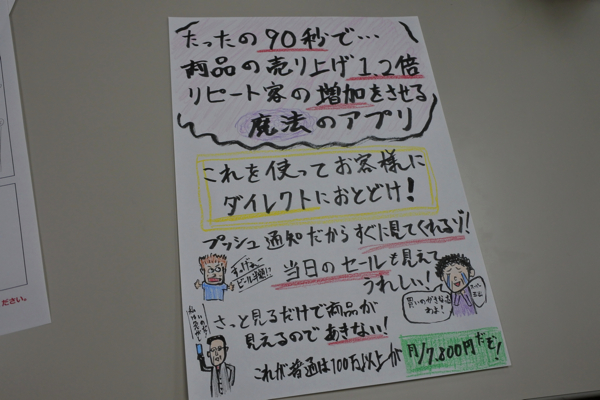 たったの90秒で…
商品の売り上げ1.2倍
リピート客の増加をさせる
魔法のアプリ
これを使ってお客様に
ダイレクトにおとどけ!
プッシュ通知だからすぐに見てくれるゾ!
当日のセールも見えて
うれしい!
さっと見るだけで商品が
見えるのであきない!
これが普通は100万以上が
月/7,800円だぞ!
ださい。